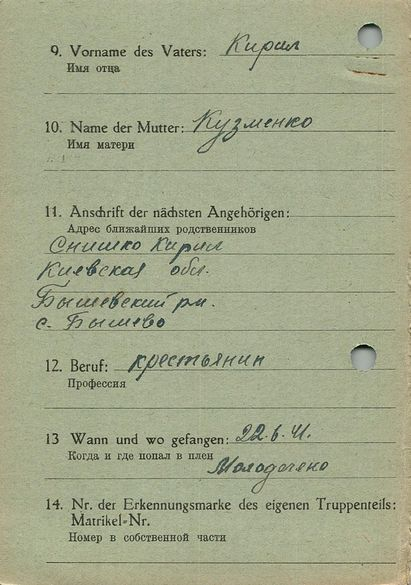 9. Vorname des Vaters: Кирил
Имя отца
10. Name der Mutter: Кузменко
Имя матери
11. Anschrift der nächsten Angehörigen:
Адрес ближайших родственников
Снишко Кирил
Киевская обл.
Бышевский рн.
с. Бышево
12. Beruf: крестьянин
Профессия
13 Wann und wo gefangen: 22.6.41.
Когда и где попал в плен
Молодечено
14. Nr. der Erkennungsmarke des eigenen Truppenteils:
Matrikel-Nr.
Номер в собственной части